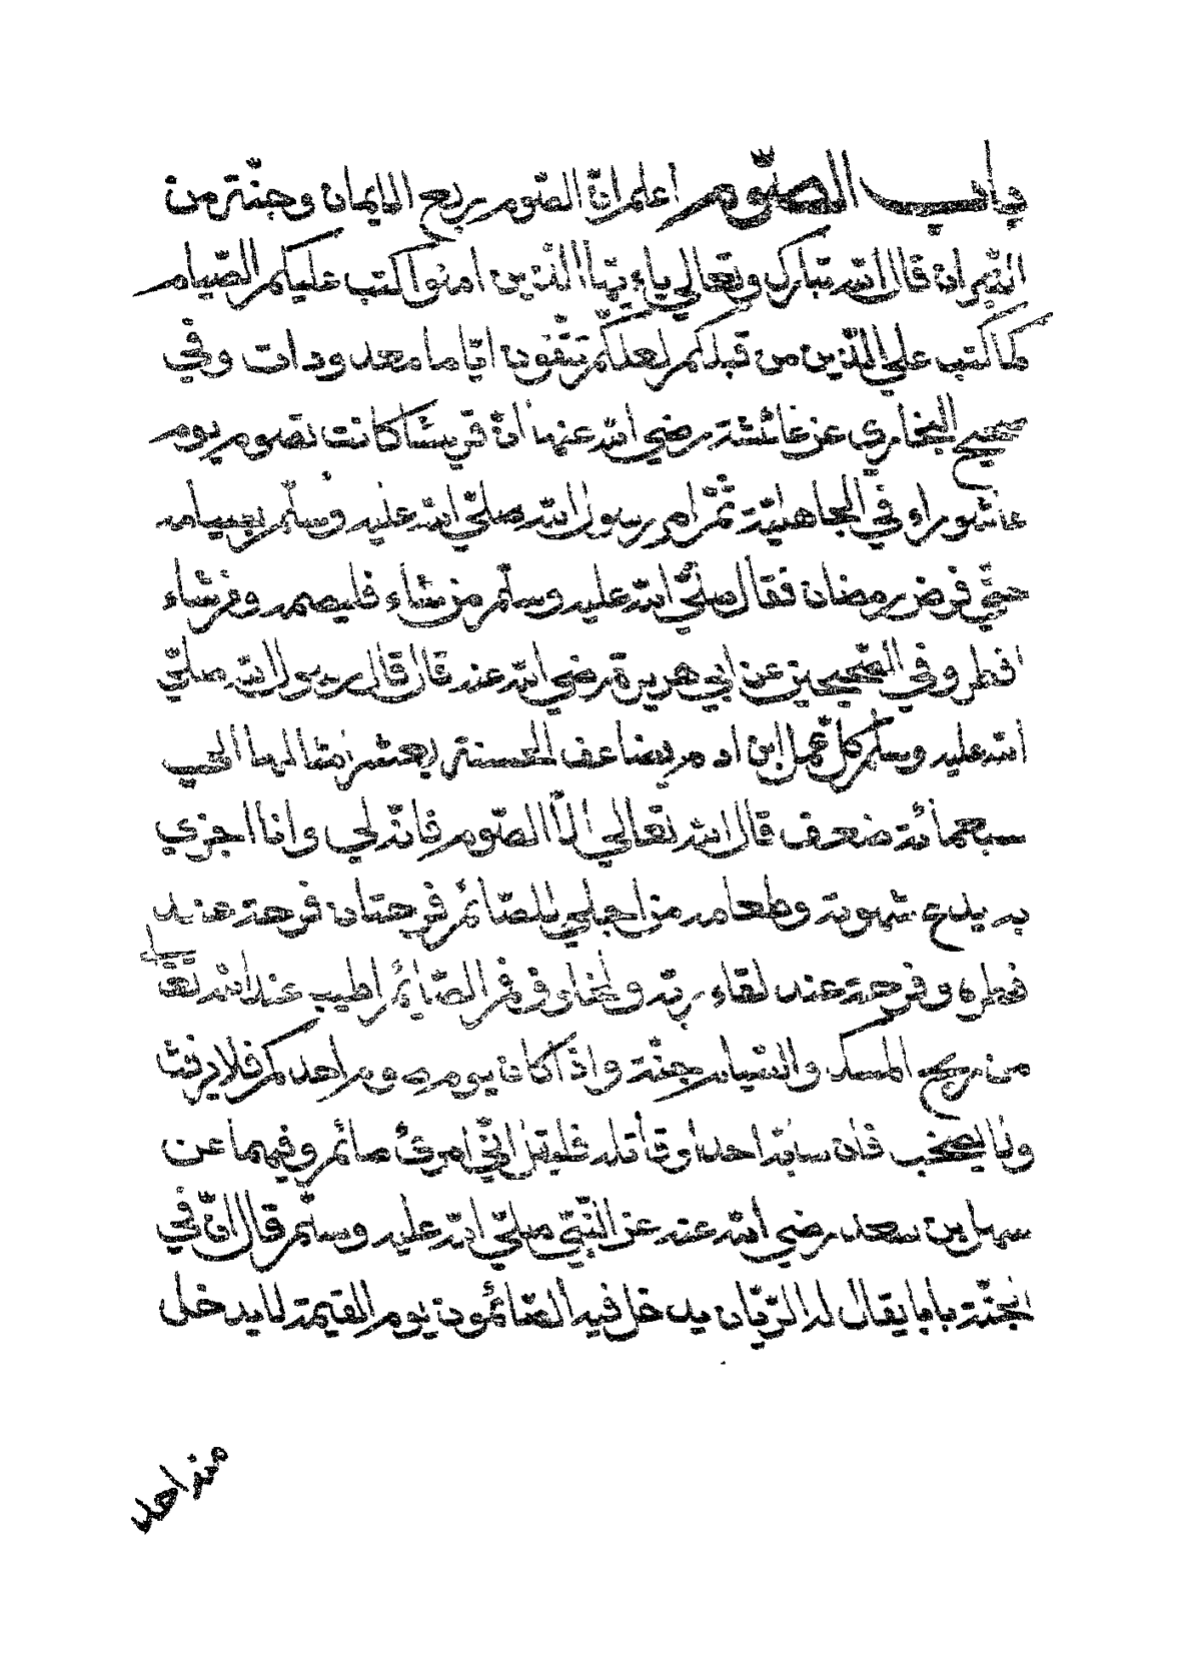 باب الصّوم اعلم انّ الصّوم ربع الايمان وجنّة من
النيران قال الله تبارك وتعالي ياءيّها الذين امنوا كتب عليكم الصّيام
كما كتب علي الّذين من قبلكم لعلّكم تتّقون ايّاما معدودات وفي
صحيح البخاري عن عائشة رضي الله عنها انّ قريشا كانت تصوم يوم
عاشوراء في الجاهليّة ثمّ امر رسول الله صلّي الله عليه وسلّم بصيامه
حتّي فرض رمضان فقال صلّي الله عليه وسلّم من شاء فليصمه ومن شاء
افطر وفي الصّحيحين عن ابي هريرة رضي الله عنه قال قال رسول الله صلّي
الله عليه وسلّم كلّ عمل ابن ادم يضاعف الحسنة بعشر امثالها الي
سبعمائة ضعف قال الله تعالي الّا الصّوم فانّه لي وانا اجزي
به يدع شهوته وطعامه من اجلي للصّائم فرحتان فرحة عند
فطره وفرحة عند لقاء ربّه ولخلوف فم الصّائم اطيب عند الله تعالي
من ريح المسك والصّيام جنّة واذا كان يوم صوم احدكم فلا يرفث
ولا يصخب فان سابّه احد او قاتله فليقل انّي امرئ صائم وفيهما عن
سهل بن سعد رضي الله عنه عن النّبيّ صلّي الله عليه وسلّم قال انّ في
الجنّة بابا يقال له الرّيّان يدخل فيه الصّائمون يوم القيمة لا يدخل
منه احد